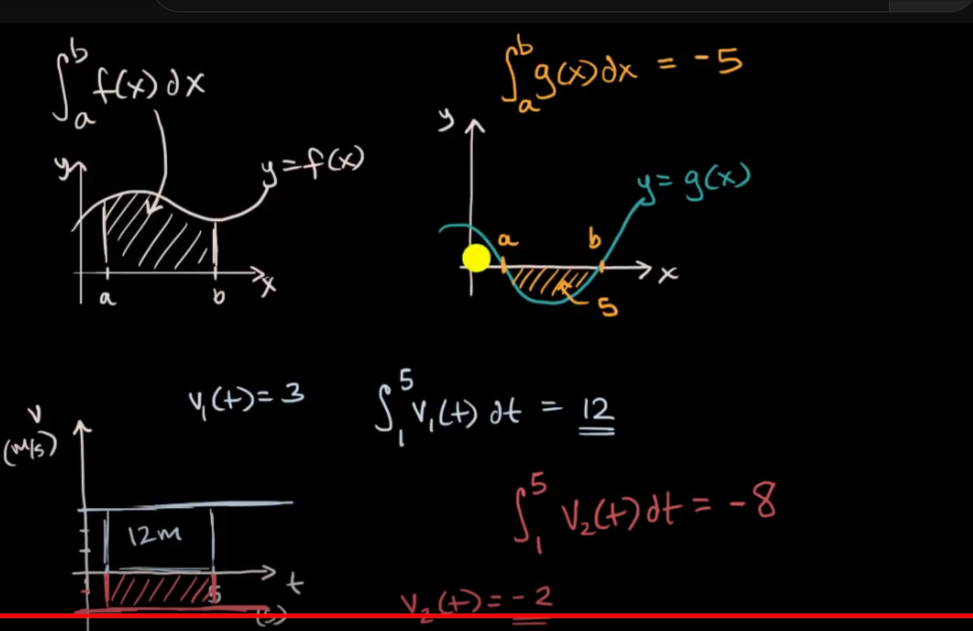 ∫_a^b f(x) dx
y
y = f(x)
a
b
x
∫_a^b g(x) dx = -5
y
y = g(x)
a
b
x
5
v₁(t) = 3
∫_1^5 v₁(t) dt = 12
v
(m/s)
12m
5
t
(s)
∫_1^5 v₂(t) dt = -8
v₂(t) = -2